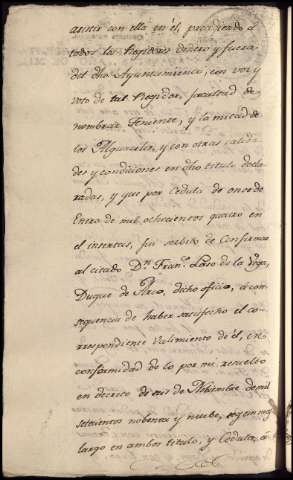 asistir con ella en él, prefiriendo á
todos los Regidores dentro y fuera
del dho Ayuntamiento, con voz y
voto de tal Regidor, facultad de
nombrar Teniente, y la mitad de
los Alguaciles, y con otras calida
des y condiciones en dho titulo decla
radas, y que por Cedula de once de
Enero de mil ochocientos quatro en
él insertas, fuí servido de Confirmar
al citado Dn. Franco. Laso de la Vega,
Duque de Arco, dicho oficio, á con
sequencia de haber satisfecho el co
rrespondiente Valimiento de él, en
conformidad de lo por mi resuelto
en decreto de seis de Noviembre de mil
setecientos nobenta y nuebe, segun mas
largo en ambos titulo, y Cedula, á